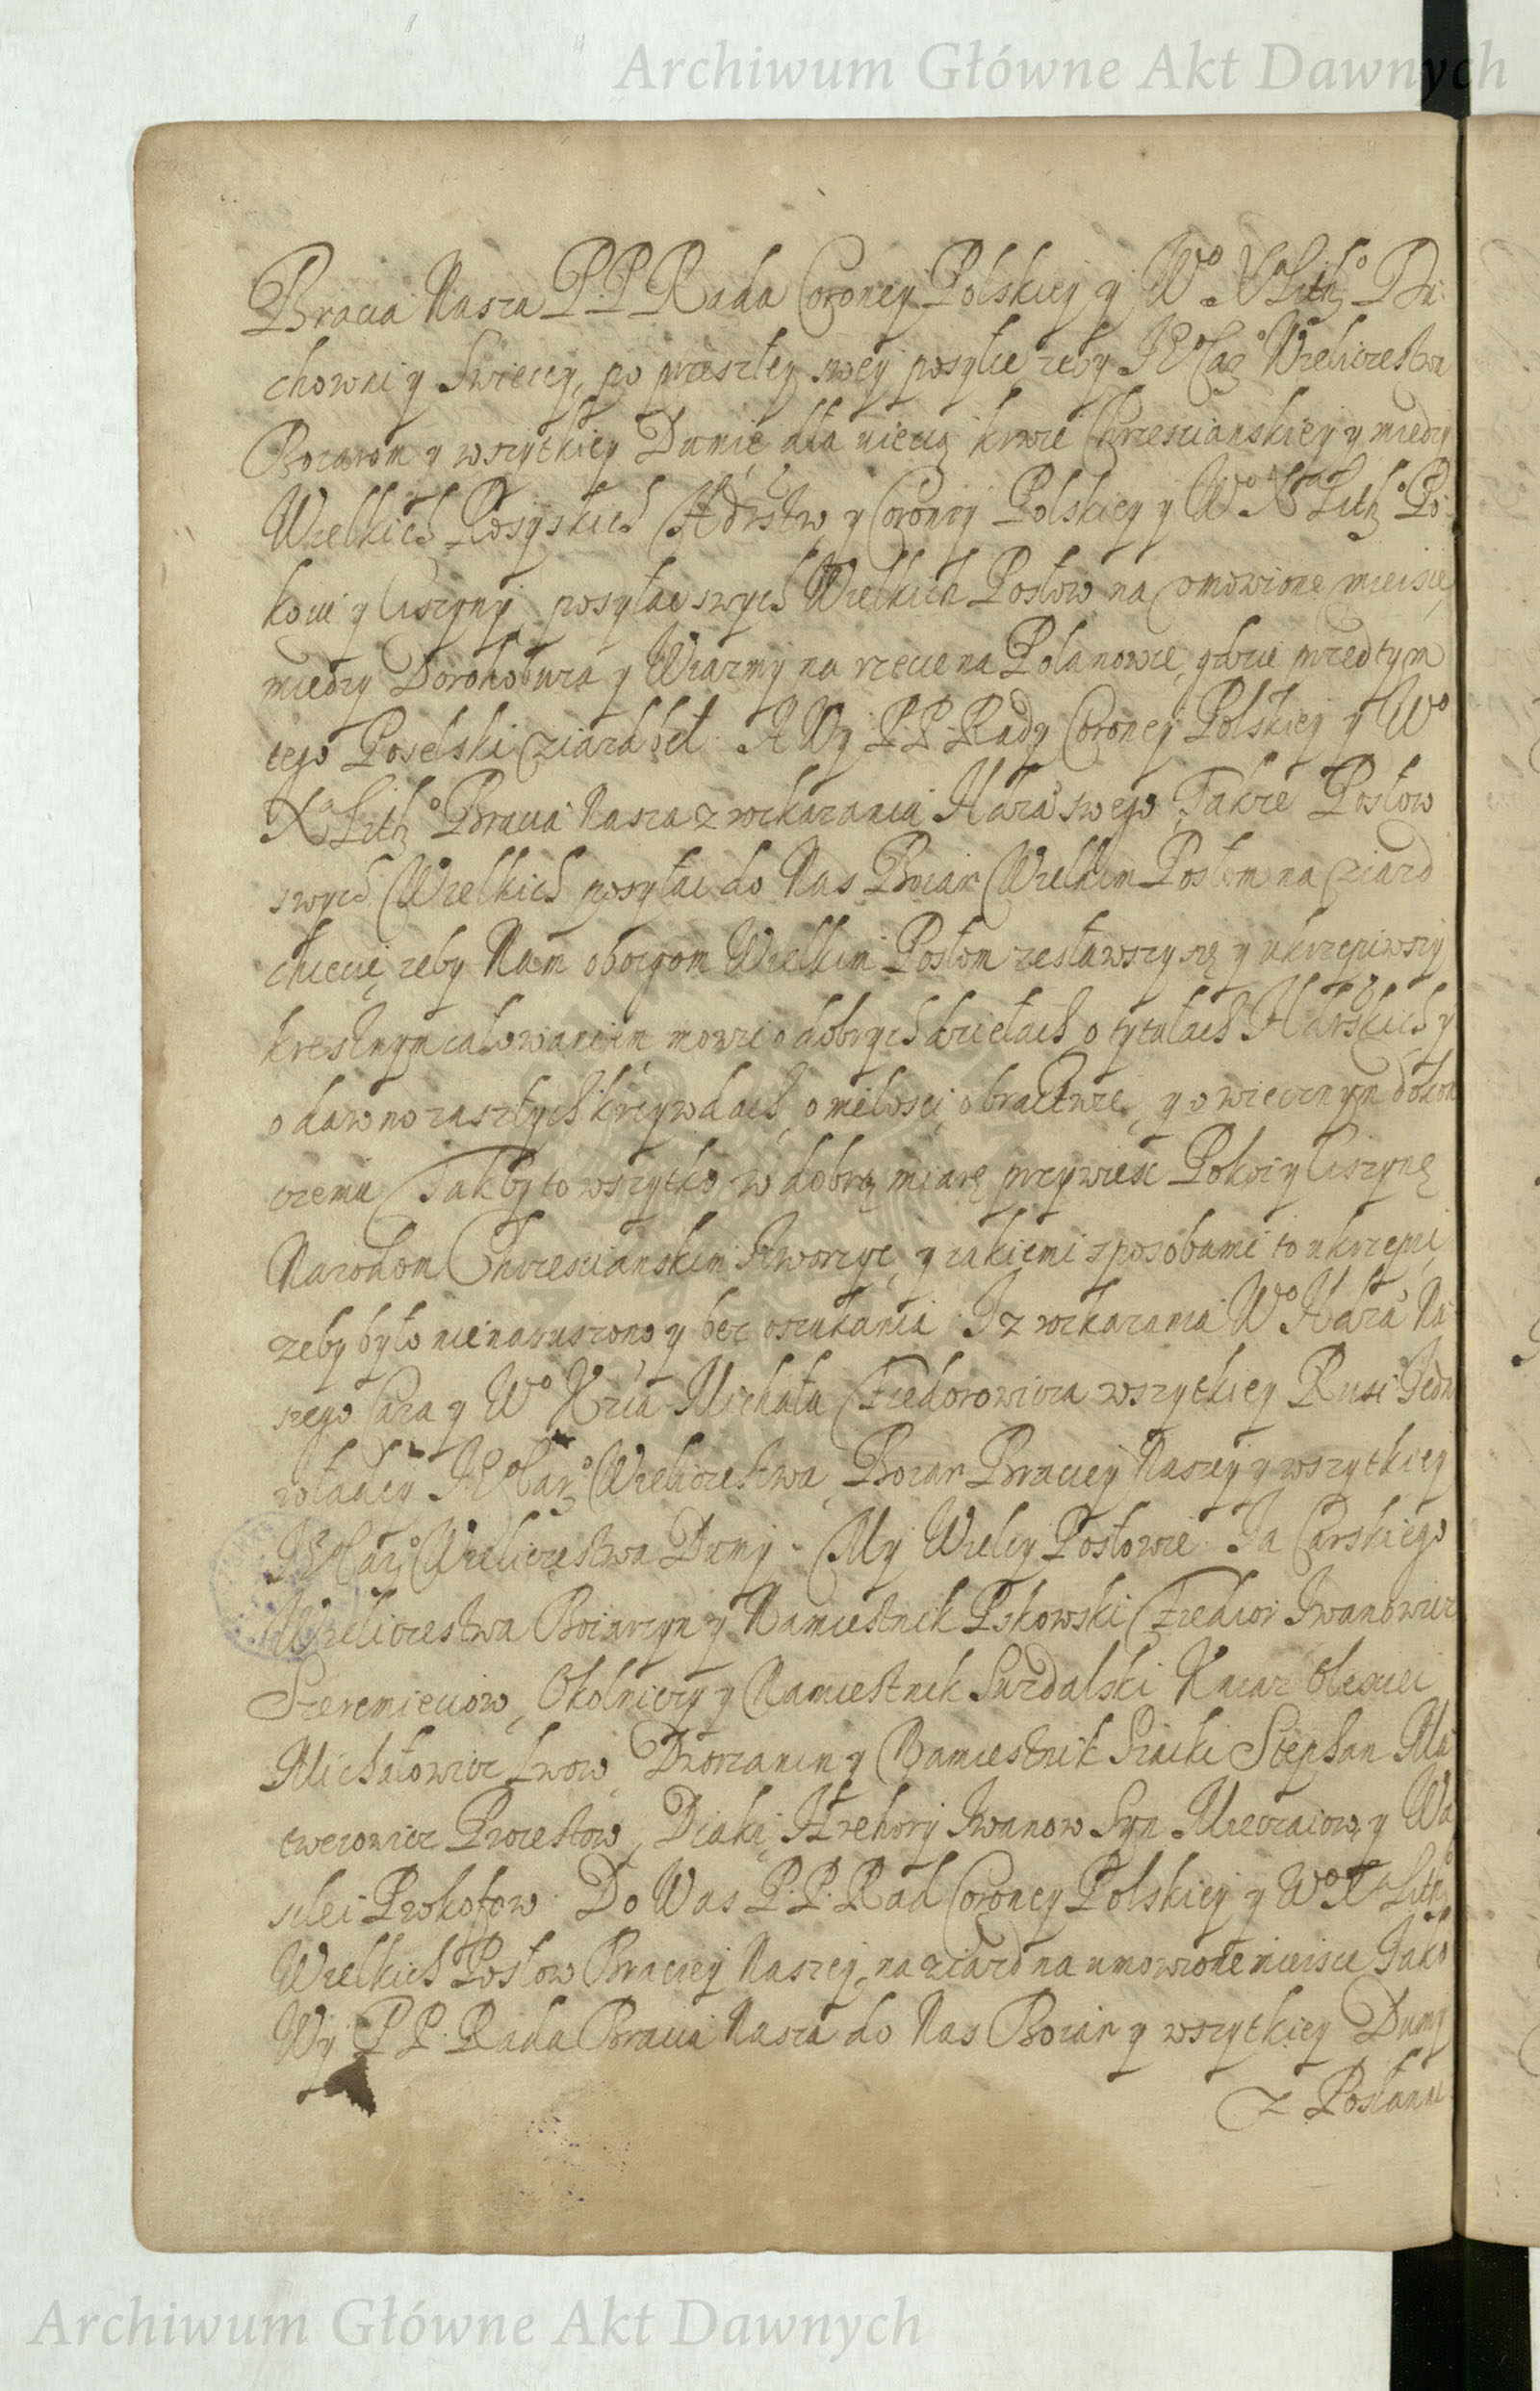 Archiwum Główne Akt Dawnych
Bracia Nasza P.P. Rada Coroney Polskiey y Wº Xª Lithº Du:
chowni y Swieccy, po przeszłey swey posyłce zeby Jº Carº Wieliczestwa
Boiarom y wszytkiey Dumie, dla krwie Chrzescianskiey y miedzy
Wielkich Rosyiskich Hdrstw y Corony Polskiey y Wº Xª Lithº Po:
koiu y Ciszyny, posyłac swych Wielkich Posłow na omowione mieisce
miedzy Dorohobuza y Wiazmy na rzece na Polanowie, gdzie przed tym
tego Poselski ziazd beł. A Wy P.P. Rady Coroney Polskiey y Wº
Xª Lithº Bracia Nasza z rozkazania Hdra swego, Takze Posłow
swych Wielkich posyłac do Nas Boiar Wielkim Posłom na ziazd
chcecie, zeby Nam oboygom Wielkim Posłom zestawszy się y ukrzepiwszy
krestnym całowaniem mowic o dobrych dziełach o tytułach Hdrskich y
o dawno zaszłych krzywdach, o miłosci, o bractwie, y o wiecznym dokon
czeniu Jakby to wszytko w dobrą miarę przywiesc Pokoi y Ciszynę
Narodom Chrzescianskim stworzyc, y iakiemi sposobami to ukrzepic,
zeby było nienaruszono y bez oszukania. I z rozkazania Wº Hdra Na
szego Cara y Wº Xcia Michała Fiedorowicza wszytkiey Rusi Jedno
władcy Jº Carº Wieliczestwa, Boiar Braciey Naszey y wszytkiey
Jº Carº Wieliczestwa Dumy. My Wielcy Posłowie. Ja Carskiego
Wieliczestwa Boiarzyn y Namiestnik Pskowski Fiedior Iwanowicz
Szeremieciow, Okolniczy y Namiestnik Suzdalski Kniaz Olexiei
Michałowicz Lwow, Dworzanin y Namiestnik Stephan Ma
tweiowicz Proiestow, Diaki, Hrehory Iwanow Syn Nieczaiow, y Wa
silei Prokofow. Do Was P.P. Rad Coroney Polskiey y Wº Xª Lithº
Wielkich Posłow Braciey Naszey, na ziazd na umowione mieisce Jako
Wy P.P. Rada Bracia Nasza do Nas Boiar y wszytkiey Dumy
z Posłanni
Archiwum Główne Akt Dawnych